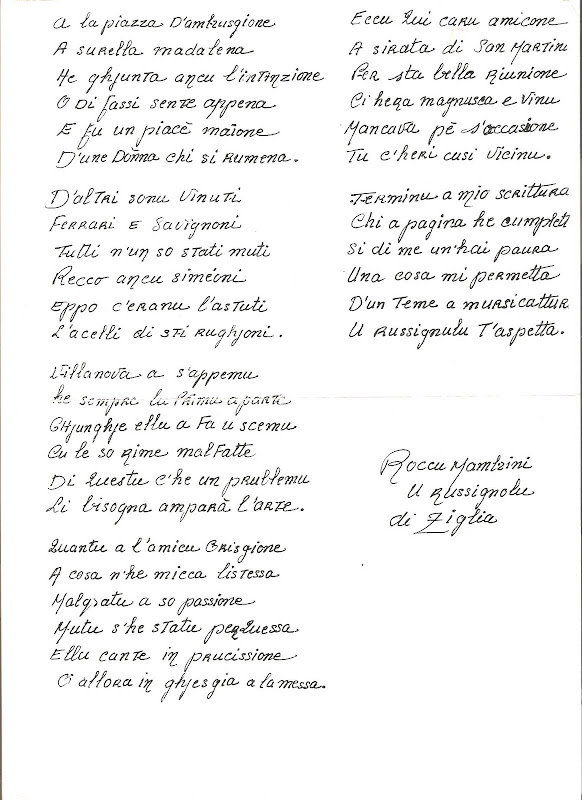 A la piazza D'ambrusgione
A surella madalena
He ghjunta ancu l'intinzione
O Di fassi sente appena
E fu un piacè maïone
D'une Donna chi si rumena.
D'altri sonu vinuti
Ferrari e Savignoni
Tutti n'un so stati muti
Recco ancu Siméoni
Eppo c'eranu l'astuti
L'acelli di sti rughjoni.
Villanova a s'appemu
he sempre lu Primu a parte
Ghjunghje ellu a Fa u scemu
Cu le so Rime malfatte
Di Questu c'he un prublemu
Li bisogna amparà l'arte.
Quantu a l'amicu Grisgione
A cosa n'he micca listessa
Malgratu a so passione
Mutu s'he statu perquessa
Ellu cante in prucissione
O allora in ghjesgia a la messa.
Eccu Qui caru amicone
A sirata di San Martinu
Per sta bella Riunione
Ci hera magnusca e vinu
Mancava pè s'occasione
Tu c'heri cusi vicinu.
Terminu a mio scrittura
Chi a pagina he cumpleta
Si di me un'hai paura
Una cosa mi permetta
D'un Teme a mursicattura
U Russignulu T'aspetta.
Roccu Mambrini
U Russignolu
di Ziglia